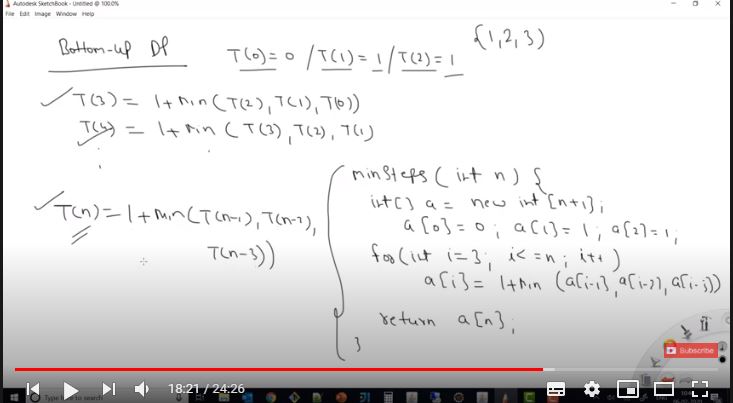 Autodesk SketchBook - Untitled @ 100.0%
File Edit Image Window Help
Bottom-up DP
T(0)= 0 / T(1)= 1 / T(2)= 1
{1,2,3)
T(3) = 1+min(T(2), T(1), T(0))
T(4) = 1+min ( T(3), T(2), T(1)
T(n)=1+min(T(n-1), T(n-2),
T(n-3))
minsteps( int n ) {
int[] a = new int [n+1];
a[0]=0; a[1]=1; a[2]=1;
for(int i=3; i<=n; i++)
a[i]= 1+min (a[i-1], a[i-2], a[i-3])
return a[n];
}
Subscribe
18:21 / 24:26